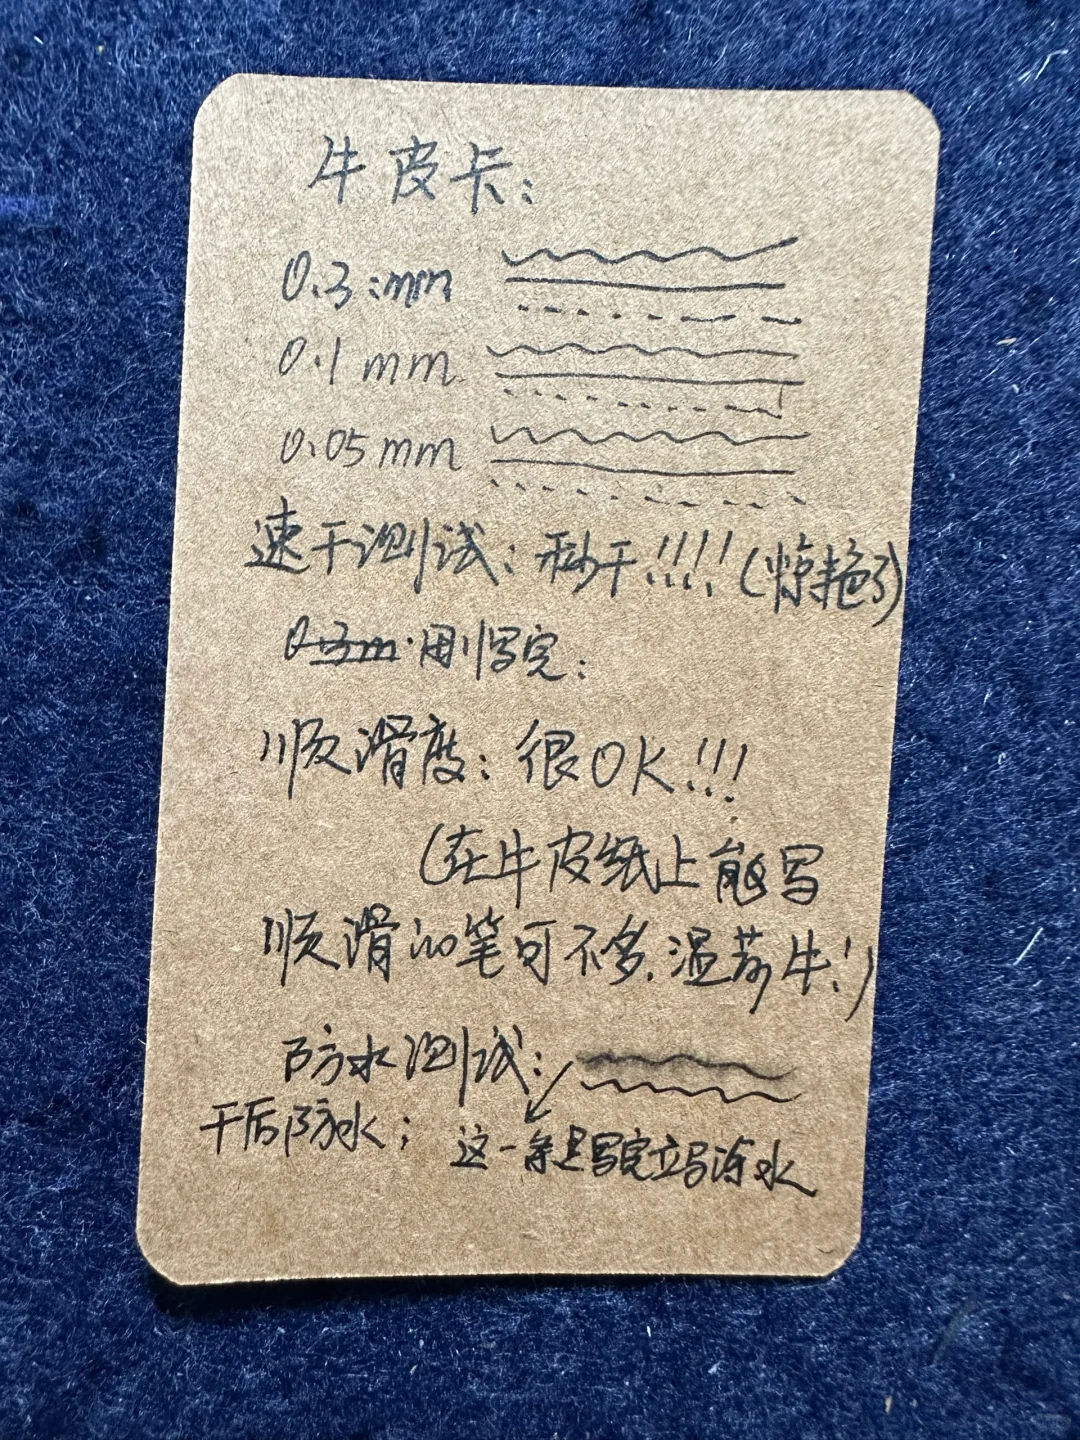 牛皮卡:
0.3mm
0.1mm
0.05mm
速干测试:秒干!!!!(惊艳了)
0.3m·刚写完:
顺滑度:很OK!!!
(在牛皮纸上能写
顺滑的笔可不多,温莎牛!)
防水测试:
干后防水;这一条是写完立马涂水